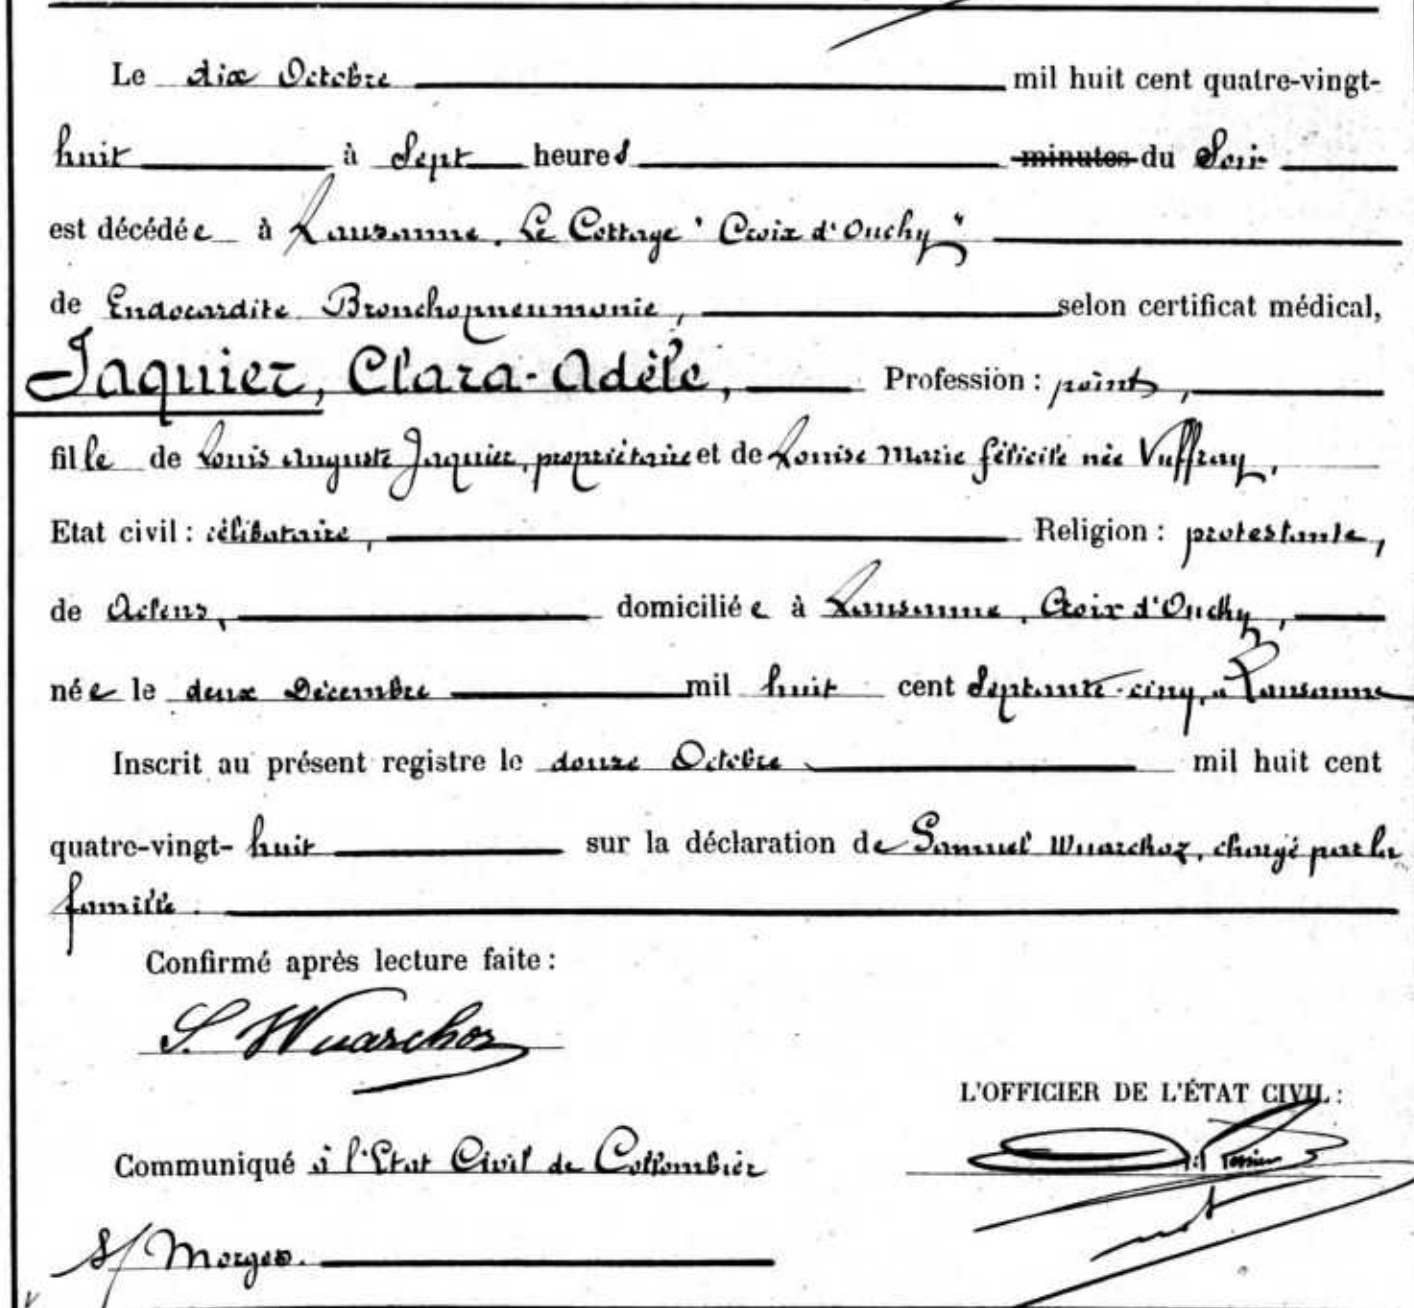 Le dix Octobre mil huit cent quatre-vingt-
huit à Sept heures minutes du Soir
est décédée à Lausanne, Le Cottage "Croix d'Ouchy"
de Endocardite Bronchopneumonie, selon certificat médical,
Jaquier, Clara-Adèle, Profession : point,
fille de Louis Auguste Jaquier, propriétaire et de Louise Marie félicité née Vuffray,
Etat civil : célibataire, Religion : protestante,
de Aclens, domiciliée à Lausanne, Croix d'Ouchy,
née le deux Décembre mil huit cent Septante-cinq, à Lausanne
Inscrit au présent registre le douze Octobre mil huit cent
quatre-vingt-huit sur la déclaration de Samuel Wuarchoz, chargé par la
famille.
Confirmé après lecture faite :
S. Wuarchoz
L'OFFICIER DE L'ÉTAT CIVIL :
Communiqué à l'Etat Civil de Collombier
s/ Morges.